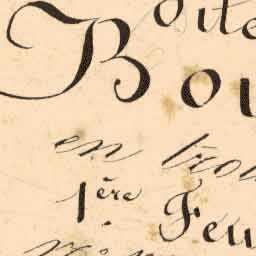 dite
Bou
en trou
1ère Feu